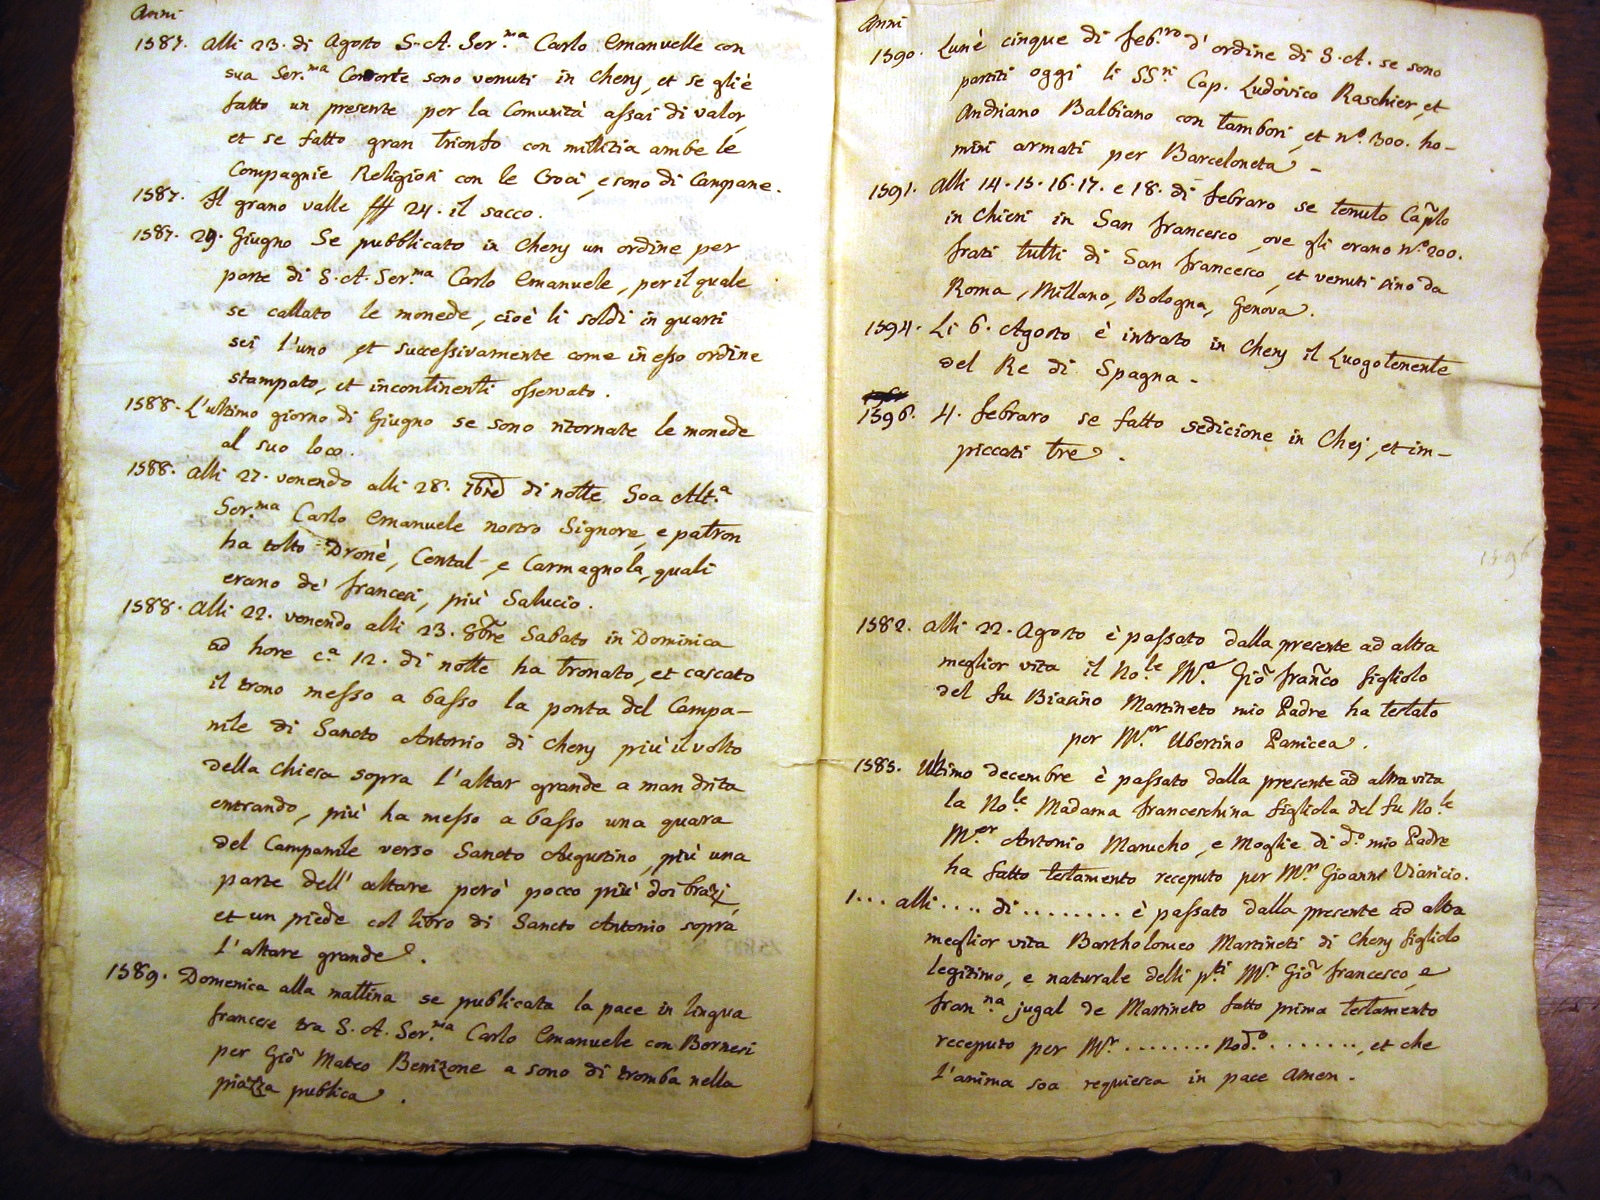 Anni
1587. alli 23. di Agosto S. A. Ser.ma Carlo Emanuelle con
sua Ser.ma Consorte sono venuti in Chery, et se gli è
fatto un presente per la Comunità assai di valor,
et se fatto gran trionfo con millitia ambe le
Compagnie Religiosi con le Croci, e sono di Campane.
1587. Il grano valle fff 24. il sacco.
1587. 29. Giugno Se pubblicato in Chery un ordine per
parte di S. A. Ser.ma Carlo Emanuele, per il quale
se callato le monede, cioè li soldi in quarti
sei l'uno et successivamente come in esso ordine
stampato, et incontinenti osservato.
1588. L'ultimo giorno di Giugno se sono ritornate le monede
al suo loco.
1588. alli 27. venendo alli 28. 7bre di notte Soa Alt.a
Ser.ma Carlo Emanuele nostro Signore, e patron
ha tolto Dronè, Cental, e Carmagnola, quali
erano de' francesi, più Salucio.
1588. alli 22. venendo alli 23. 8bre Sabato in Dominica
ad hore c.a 12. di notte ha tronato, et cascato
il trono messo a basso la ponta del Campa-
nile di Sancto Antonio di Chery più il volto
della chiesa sopra l'altar grande a man drita
entrando, più ha messo a basso una quara
del Campanile verso Sancto Augustino, più una
parte dell' altare però pocco più doi brazi,
et un piede col libro di Sancto Antonio sopra
l'altare grande.
1589. Domenica alla mattina se publicata la pace in lingua
francese tra S. A. Ser.ma Carlo Emanuele con Bernesi
per Giõ Mateo Benizone a sono di tromba nella
piazza publica.
Anni
1590. Lunè cinque di feb.ro d'ordine di S. A. se sono
partiti oggi li SS.ri Cap. Ludovico Raschier, et
Andriano Balbiano con tambori, et n.o 300. ho-
mini armati per Barceloneta -
1591. alli 14. 15. 16. 17. e 18. di febraro se tenuto Cap̃lo
in Chieri in San francesco, ove gli erano n.o 200.
frati tutti di San francesco, et venuti sino da
Roma, Millano, Bologna, Genova.
1594. Li 6. Agosto è intrato in Chery il Luogotenente
del Re di Spagna -
1596. 4. febraro se fatto sedicione in Chej, et im-
piccati tre.
1596
1582. alli 22. Agosto è passato dalla presente ad altra
meglior vita il No.le M.r Giõ Frañco figliolo
del fu Biasino Martineto mio Padre ha testato
per M.er Ubertino Panicea.
1585. Ultimo decembre è passato dalla presente ad altra vita
la No.le Madama franceschina figliola del fu No.le
M.er Antonio Manucho, e Moglie di d.o mio Padre
ha fatto testamento receputo per M.r Gioanni Vianicio.
1... alli .... di ........ è passato dalla presente ad altra
meglior vita Bartholomeo Martineti di Chery figliolo
legitimo, e naturale delli p.ti M.r Giõ francesco, e
fran.na jugal de Martineto fatto prima testamento
receputo per M.r ........ Nod.o ......., et che
l'anima soa requiesca in pace Amen.